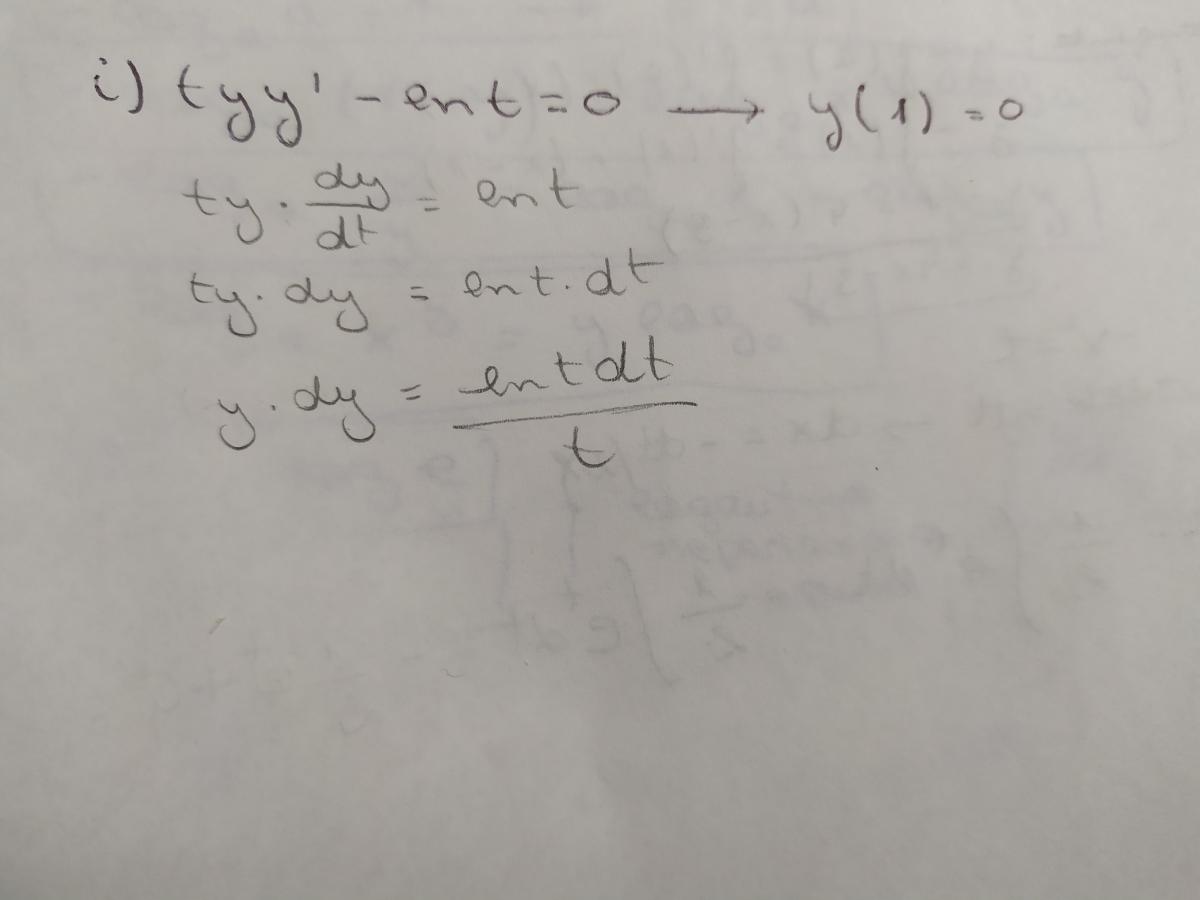 i) tyy' - ln t = 0 → y(1) = 0
ty · dy/dt = ln t
ty · dy = ln t · dt
y · dy = ln t dt / t